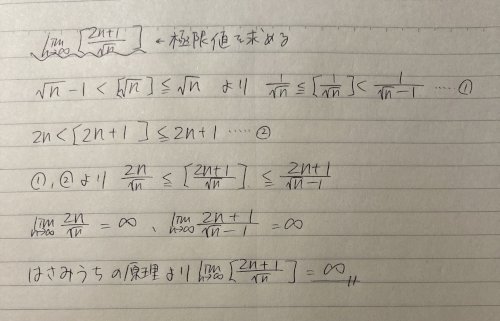 lim_{n→∞} [ (2n+1)/√n ] ← 極限値を求める
√n - 1 < [√n] ≦ √n より 1/√n ≦ [1/√n] < 1/(√n-1) ‥‥①
2n < [2n+1] ≦ 2n+1 ‥‥②
①,②より 2n/√n ≦ [ (2n+1)/√n ] ≦ (2n+1)/(√n-1)
lim_{n→∞} 2n/√n = ∞ 、 lim_{n→∞} (2n+1)/(√n-1) = ∞
はさみうちの原理より lim_{n→∞} [ (2n+1)/√n ] = ∞